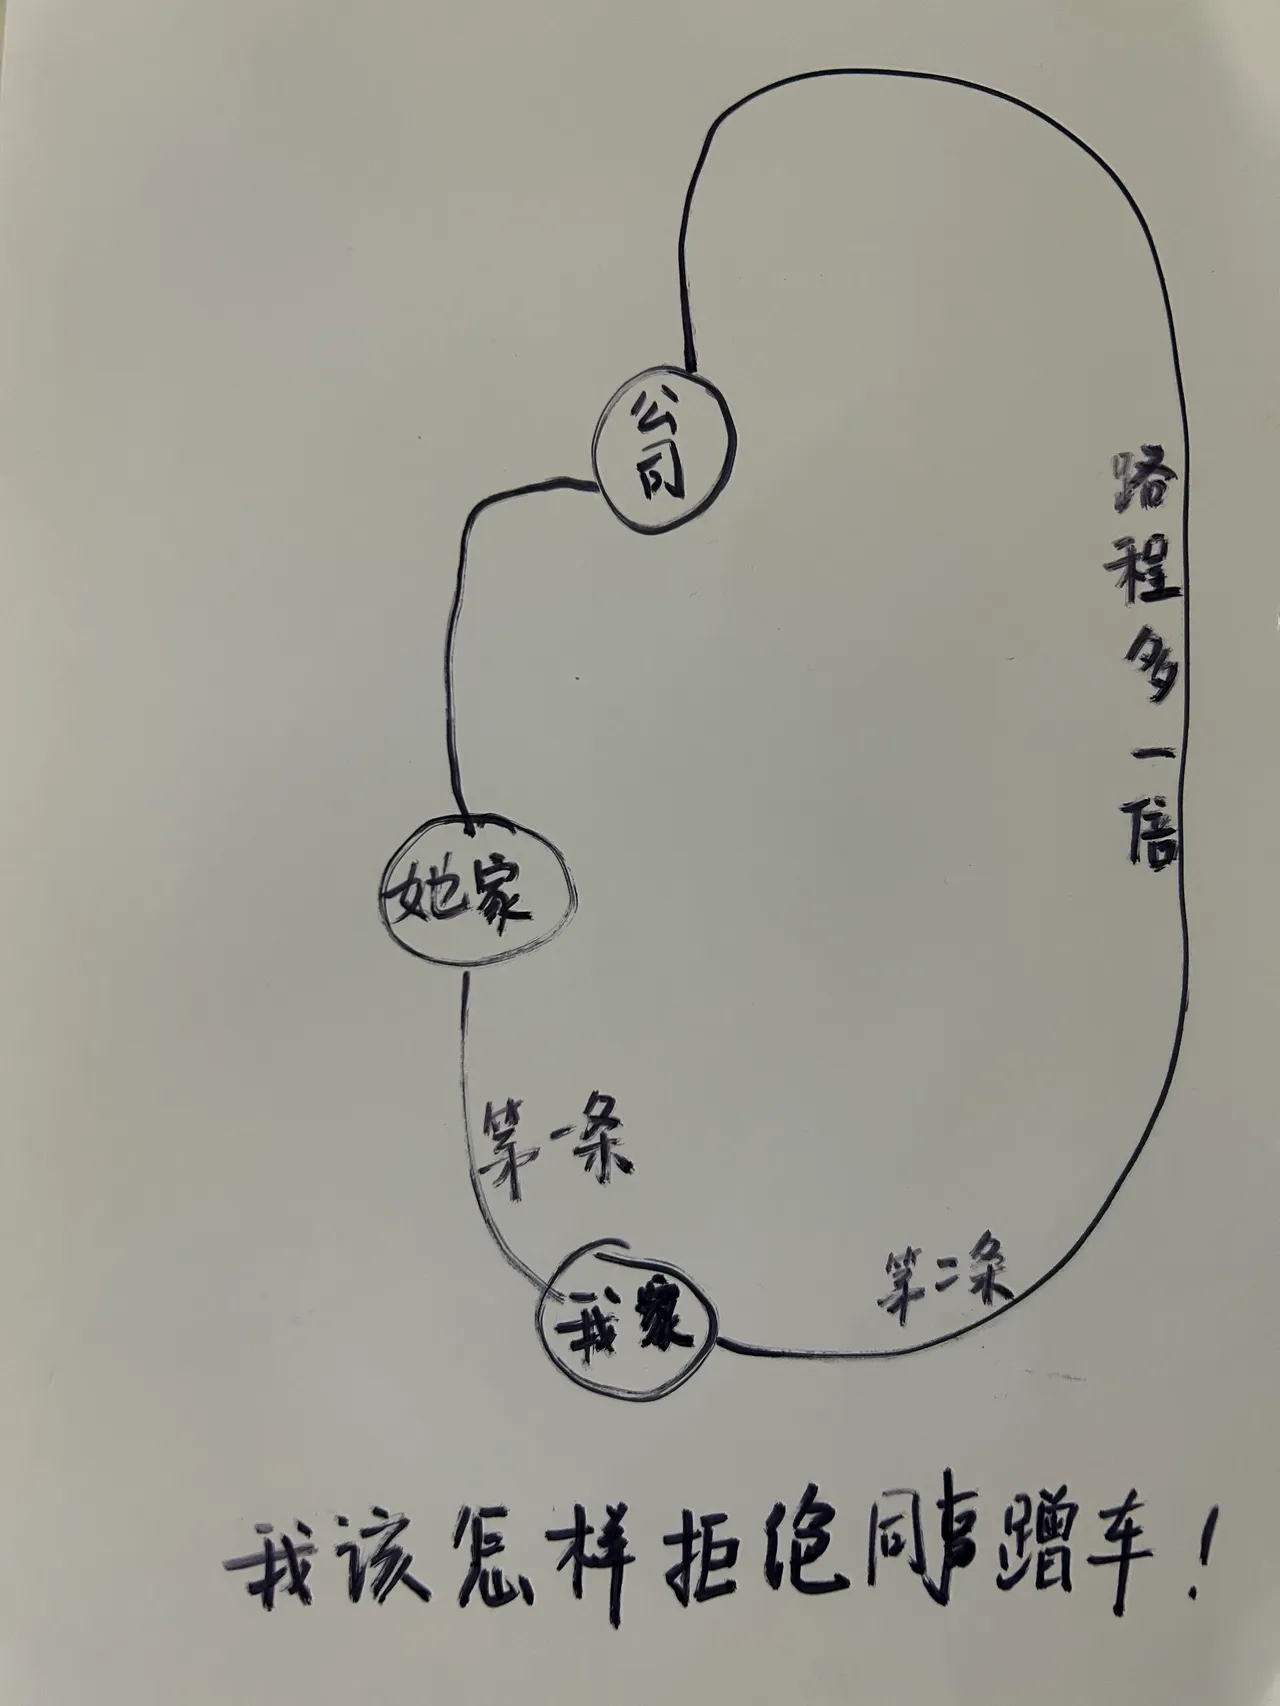 公司
路程多一倍
她家
第一条
第二条
我家
我该怎样拒绝同事蹭车！